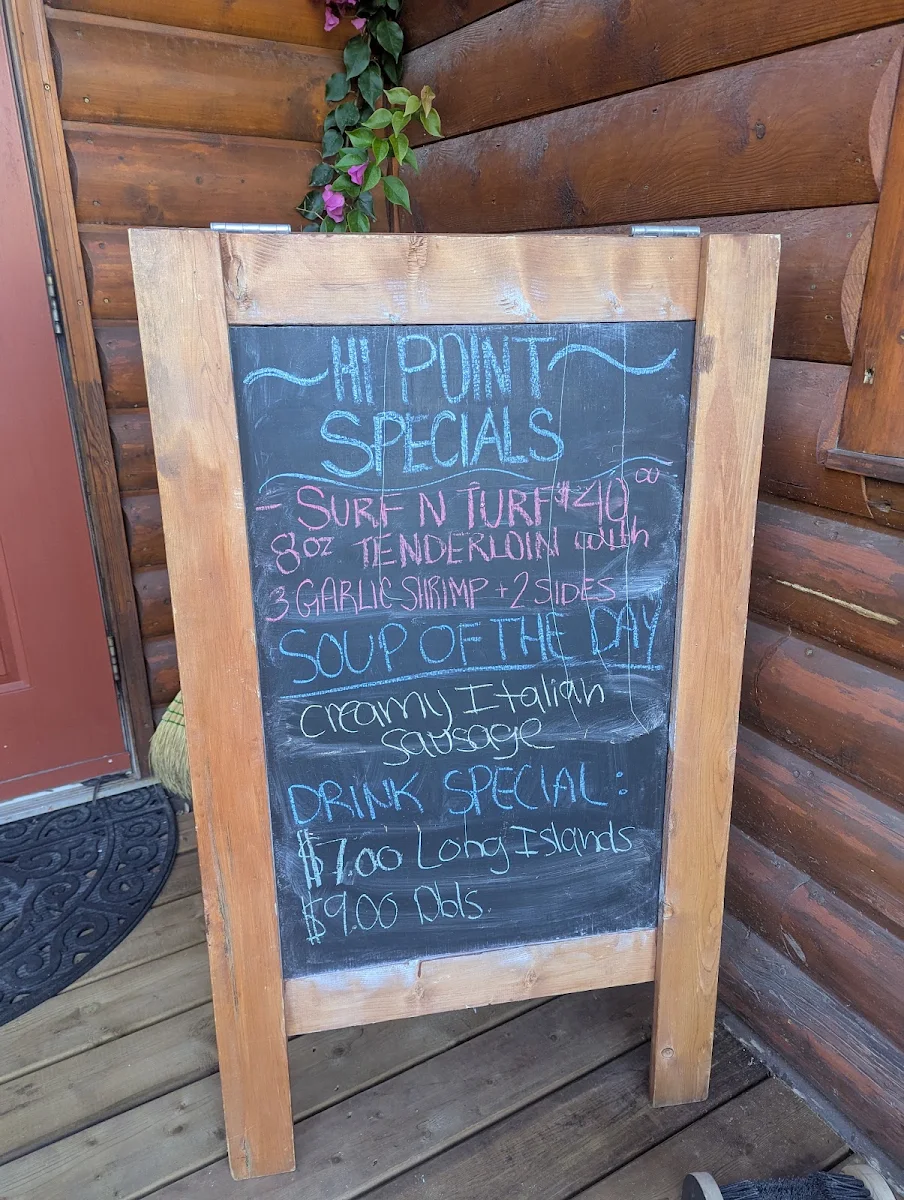 HI POINT
SPECIALS
- SURF N TURF $40.00
8oz TENDERLOIN with
3 GARLIC SHRIMP + 2 SIDES
SOUP OF THE DAY
creamy Italian
sausage
DRINK SPECIAL:
$7.00 Long Islands
$9.00 Dbls.